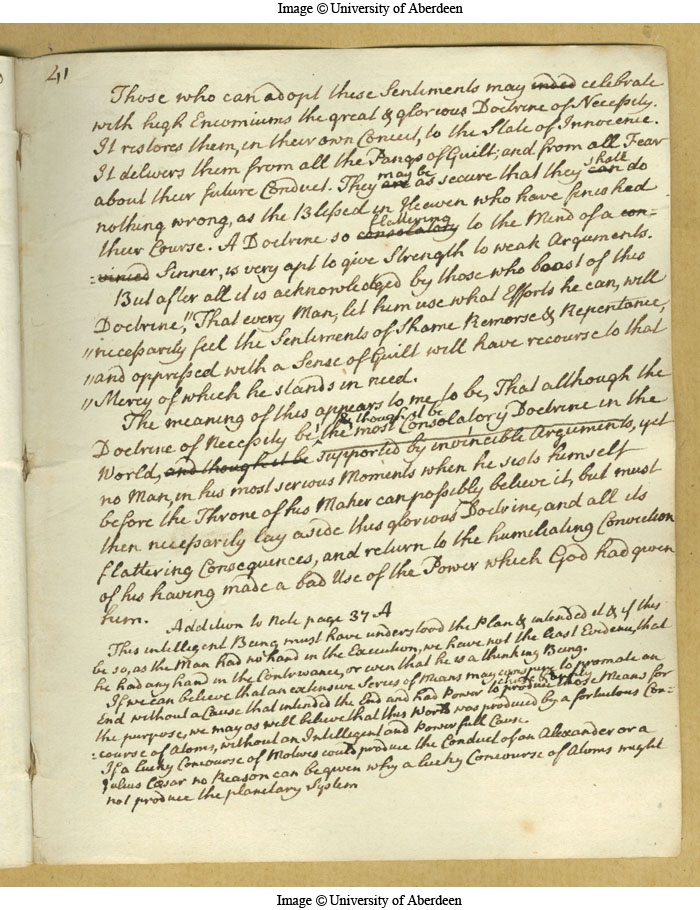 Image © University of Aberdeen
41
Those who can adopt these Sentiments may inded celebrate
with high Encomiums the great & glorious Doctrine of Necessity.
It restores them, in their own Conceit, to the State of Innocence.
It delivers them from all the Pangs of Guilt, and from all Fear
about their future Conduct. They are may be as secure that they can shall do
nothing wrong, as the Blessed in Heaven who have finished
their Course. A Doctrine so consolatory flattering to the Mind of a con-
-vinced Sinner, is very apt to give Strength to weak Arguments.
But after all it is acknowledged by those who boast of this
Doctrine, "That every Man, let him use what Efforts he can, will
"necessarily feel the Sentiments of Shame Remorse & Repentance,
"and oppressed with a Sense of Guilt will have recourse to that
"Mercy of which he stands in need.
The meaning of this appears to me to be, That although the
Doctrine of Necessity be, & though it be the most Consolatory Doctrine in the
World, and though it be supported by invincible Arguments, yet
no Man, in his most serious Moments when he sists himself
before the Throne of his Maker can possibly believe it, but must
then necessarily lay aside this glorious Doctrine, and all its
flattering Consequences, and return to the humiliating Conviction
of his having made a bad Use of the Power which God had given
him.
Addition to Note page 37 A
This intelligent Being must have understood the Plan & intended it & if this
be so, as the Man had no hand in the Execution, we have not the least Evidence, that
he had any hand in the Contrivance, or even that he is a thinking Being.
If we can believe that an extensive Series of Means may conspire to promote an
End without a Cause that intended the End and had Power to produce those Means for
the purpose, we may as well believe that this World was produced by a fortuitous Con-
-course of Atoms, without an Intelligent and Powerfull Cause.
If a lucky Concourse of Motives could produce the Conduct of an Alexander or a
Julius Cæsar no Reason can be given why a lucky Concourse of Atoms might
not produce the planetary System
Image © University of Aberdeen